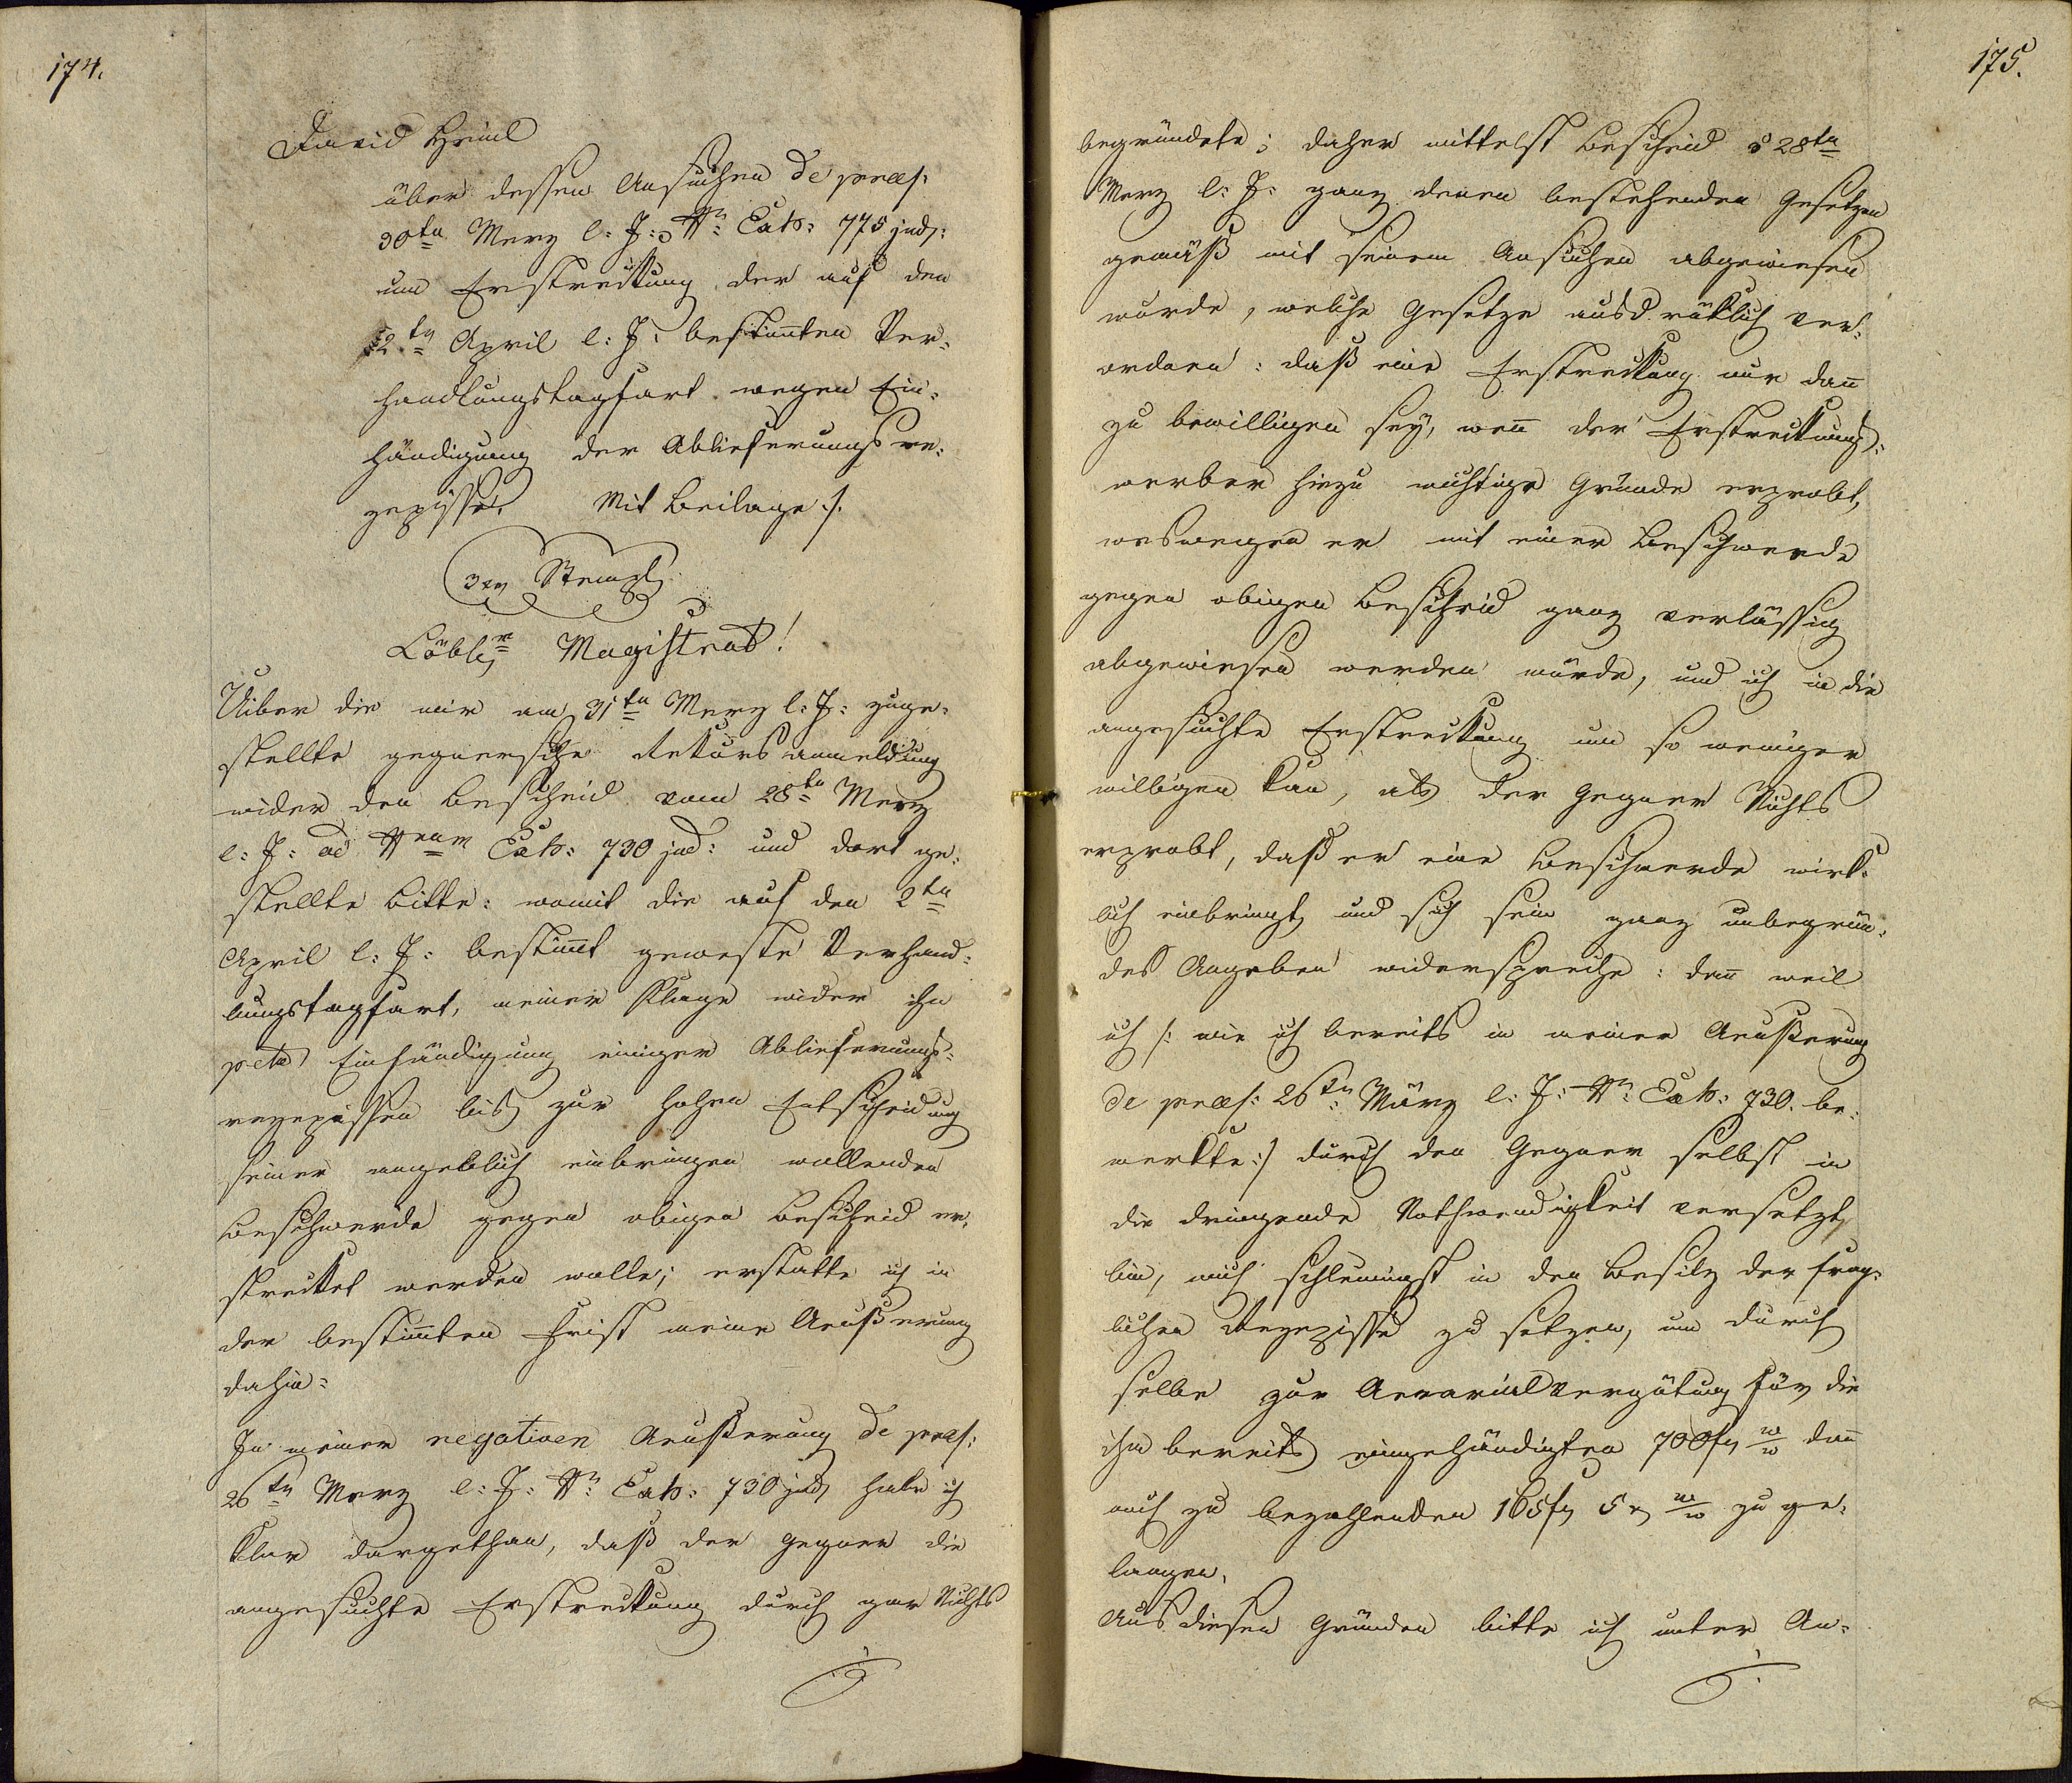 174.
David Heinl
über dessen Ansuchen de praes:
30ten Merz l: J: Nr: Exh: 775 jud:
um Erstreckung der auf den
2ten April l: J: bestim̅ten Ver-
handlungstagfart wegen Ein-
händigung der Ablieferungs re-
zepisse. Mit Beilage ./.
3 xr Stempl
Löblr Magistrat!
Uiber die mir am 31ten Merz l: J: zuge-
stellte gegnersche Rekurs anmeldung
wider den Bescheid vom 28ten Merz
l: J: ad Nrum Exh: 730 jud: und dort ge-
stellte Bitte: womit die auf den 2ten
April l: J: bestim̅t geweste Verhand-
lungstagfart, meiner Klage wider ihn
peto Einhändigung einiger Ablieferungs-
rezepissen bis zur hohen Entscheidung
seiner angeblich einbringen wollenden
Beschwerde gegen obigen Bescheid er-
strecket werden wolle; erstatte ich in
der bestim̅ten Frist meine Aeußerung
dahin:
In meiner negativen Aeußerung de praes:
26ten Merz l: J: Nr: Exh: 730 jud, habe ich
klar dargethan, daß der Gegner die
angesuchte Erstreckung durch gar Nichts
175.
begründete; daher mittelst Bescheid 28ten
Merz l: J: ganz denen bestehenden Gesetzen
gemäß mit seinem Ansuchen abgewiesen
wurde, welche Gesetze ausdrücklich ver-
ordnen: daß eine Erstreckung nur dan̅
zu bewilligen sey, wen̅ der Erstreckungs-
werber hiezu wichtige Gründe erprobt,
weswegen er mit einer Beschwerde
gegen obigen Bescheid ganz verlässig
abgewiesen werden würde, und ich in die
angesuchte Erstreckung um so weniger
willigen kan, als der Gegner Nichts
erprobt, daß er eine Beschwerde wirk-
lich einbringt, und sich sein ganz unbegrün-
des Angeben widerspreche: dan̅ weil
ich /: wie ich bereits in meiner Aeußerung
de praes: 26ten März l: J: Nr: Exh: 730. be-
merkte :/ durch den Gegner selbst in
die dringende Nothwendigkeit versetzt
bin, mich schleunigst in den Besitz der frag-
lichen Rezepisse zu setzen, um durch
selbe zur Aerarialvergütung für die
ihm bereits eingehändigten 700 fr w/w dan̅
noch zu bezahlenden 165 fr 5 xr w/w zu ge-
langen.
Aus diesen Gründen bitte ich unter An-